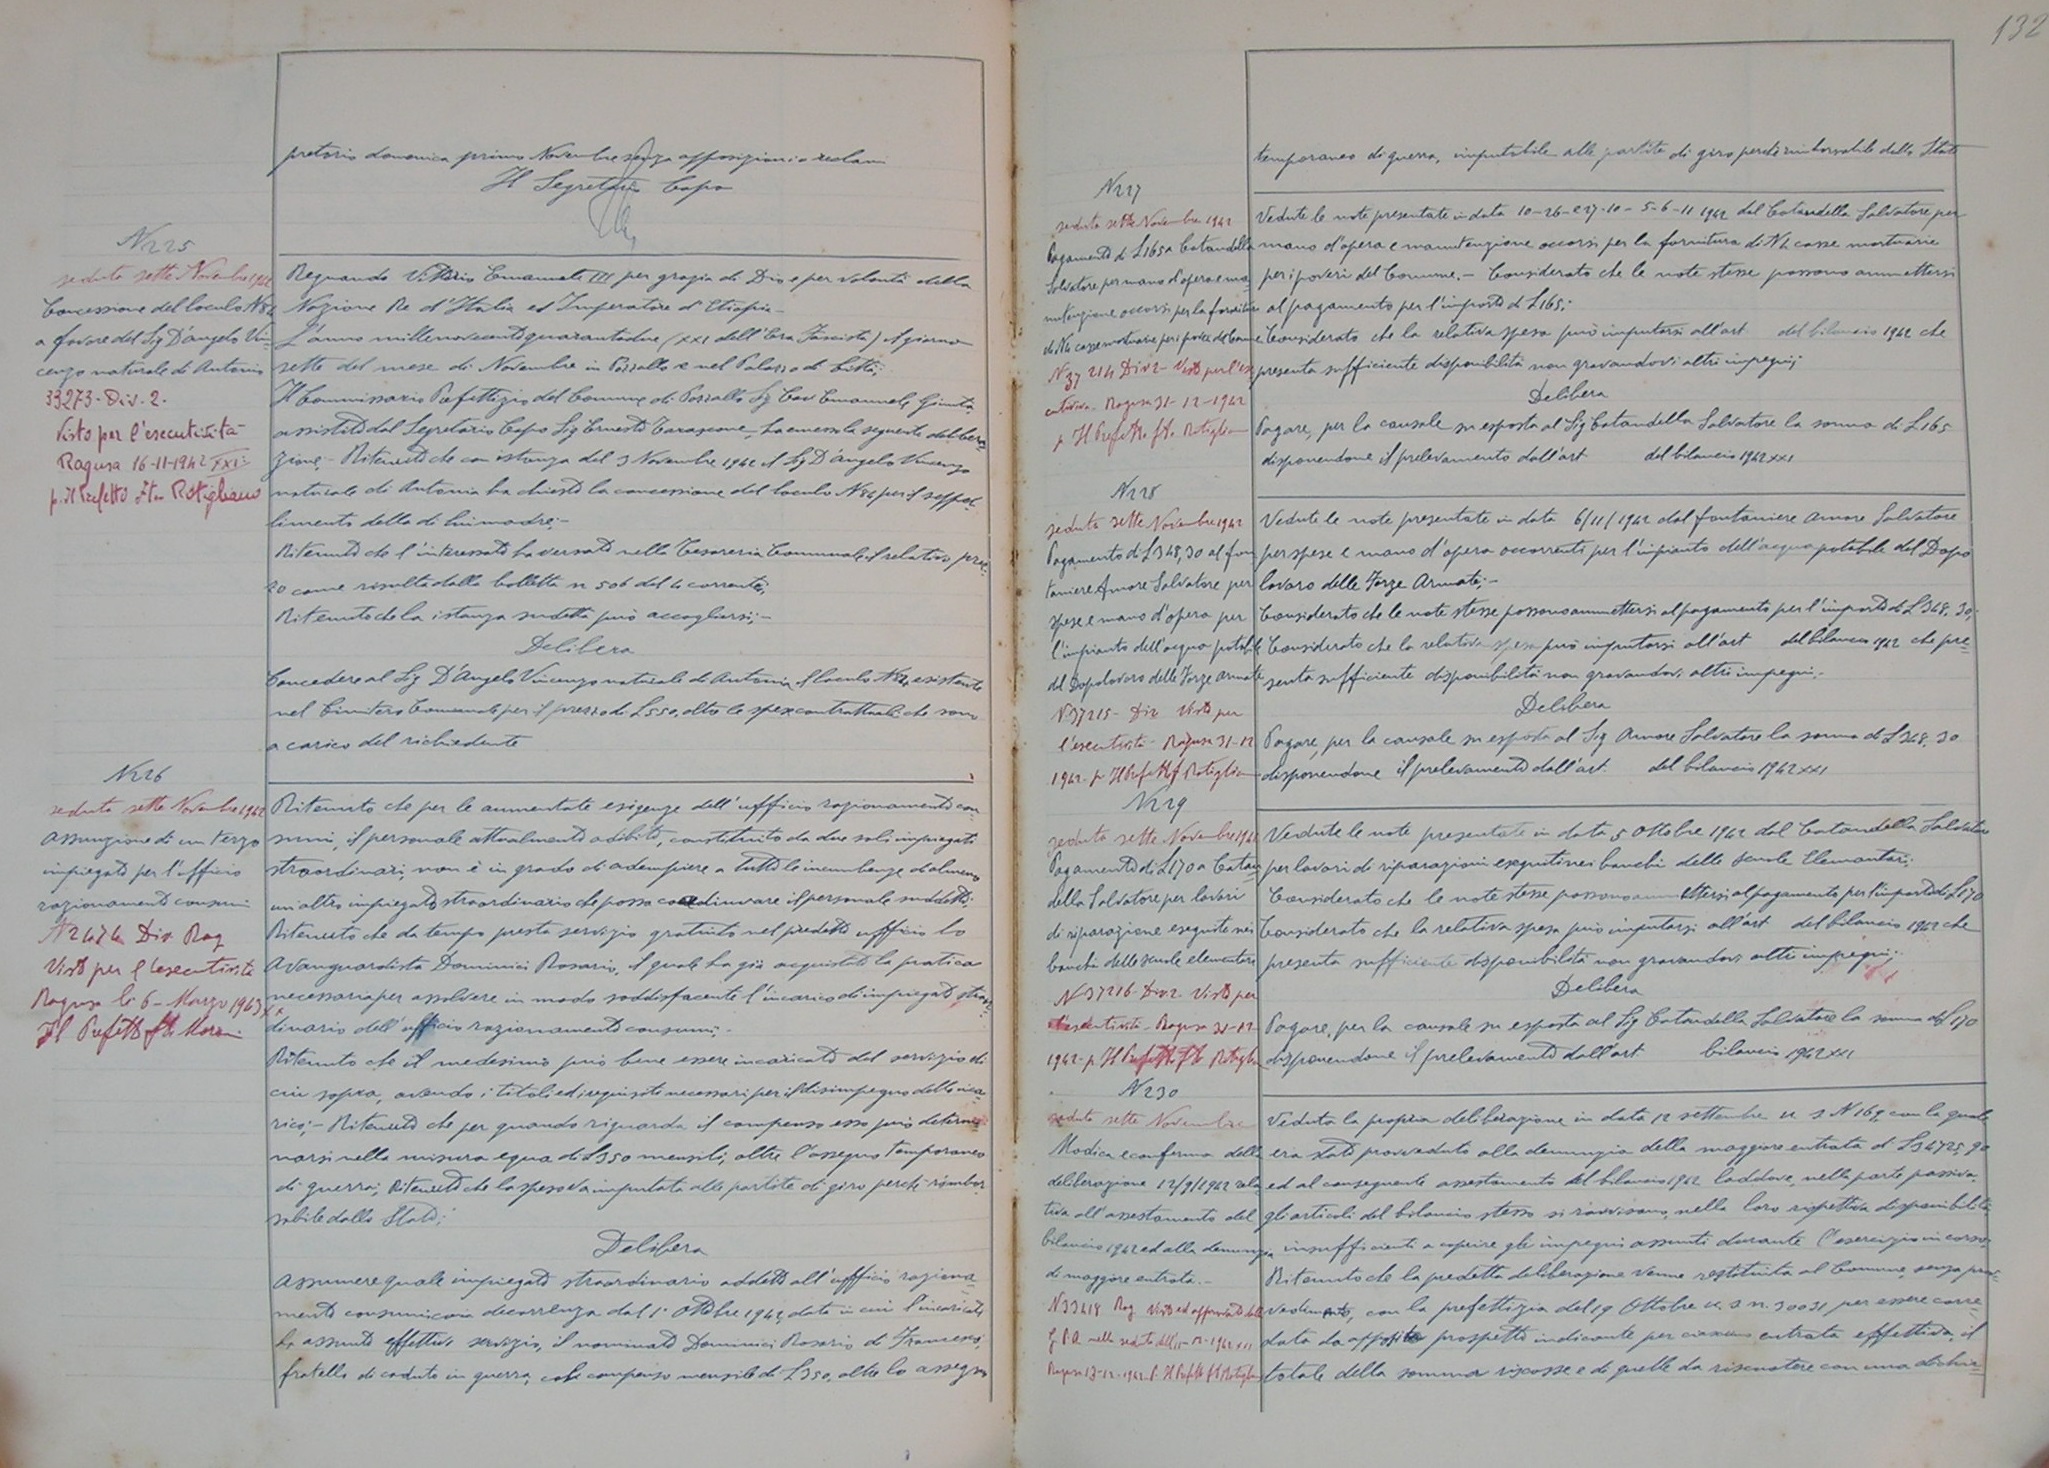 pretorio domenica primo Novembre senza opposizioni o reclami
Il Segretario Capo
N 225
seduta sette Novembre 1942
Concessione del loculo N 84
a favore del Sig D'angelo Vin-
cenzo naturale di Antonia
33273 - Div. 2 -
Visto per l'esecutività
Ragusa 16-11-1942 XXI:
p. il Prefetto f.to Rotigliano
Regnando Vittorio Emanuele III per grazia di Dio e per volontà della
Nazione Re d'Italia ed Imperatore d'Etiopia -
L'anno millenovecentoquarantadue (XXI dell'Era Fascista) il giorno
sette del mese di Novembre in Pozzallo e nel Palazzo di Città;
Il Commissario Prefettizio del Comune di Pozzallo Sig Cav Emanuele Giunta
assistito dal Segretario Capo Sig Ernesto Tarascone, ha emesso la seguente delibera
zione - Ritenuto che con istanza del 3 Novembre 1942 il Sig D'angelo Vincenzo
naturale di Antonia ha chiesto la concessione del loculo N 84 per il seppel-
limento della di lui madre; -
Ritenuto che l'interessato ha versato nella Tesoreria Comunale il relativo prez-
zo come risulta dalla bolletta n 506 del 4 corrente;
Ritenuto che la istanza sudetta può accogliersi; -
Delibera
Concedere al Sig D'Angelo Vincenzo naturale di Antonia il loculo N 84 esistente
nel Cimitero Comunale per il prezzo di L 550, oltre le spese contrattuali che sono
a carico del richiedente
N 226
seduta sette Novembre 1942
Assunzione di un terzo
impiegato per l'ufficio
razionamento consumi
N 2474 Div. Rag
Visto per l'esecutività
Ragusa li 6 - Marzo 1943 XX
Il Prefetto fto
Ritenuto che per le aumentate esigenze dell'ufficio razionamento con-
sumi, il personale attualmente adibito, constituito da due soli impiegati
straordinari, non è in grado di adempiere a tutte le incombenze di almeno
un altro impiegato straordinario che possa coadiuvare il personale suddetto;
Ritenuto che da tempo presta servizio gratuito nel predetto ufficio lo
Avanguardista Dominici Rosario, il quale ha già acquistato la pratica
necessaria per assolvere in modo soddisfacente l'incarico di impiegato straor-
dinario dell'ufficio razionamento consumi; -
Ritenuto che il medesimo può bene essere incaricato del servizio di
cui sopra, avendo i titoli ed i requisiti necessari per il disimpegno dello inca-
rico; - Ritenuto che per quanto riguarda il compenso esso può determi-
narsi nella misura equa di L 350 mensili, oltre l'assegno temporaneo
di guerra; Ritenuto che la spesa va imputata alle partite di giro perché rimbor-
sabile dallo Stato;
Delibera
Assumere quale impiegato straordinario addetto all'ufficio raziona-
mento consumi con decorrenza dal 1° Ottobre 1942, data in cui l'incaricato
ha assunto effettivo servizio, il nominato Dominici Rosario di Francesco,
fratello di caduto in guerra, col compenso mensile di L 350, oltre lo assegno
132
temporaneo di guerra, imputabile alle partite di giro perché rimborsabile dallo Stato
N 227
seduta sette Novembre 1942
Pagamento di L 165 a Catandella
Salvatore per mano d'opera e ma-
nutenzione occorsi per la fornitura
di N 4 casse mortuarie per i poveri del Comune
N 37214 Div 2 - Visto per l'ese
cutività - Ragusa 31-12-1942
p Il Prefetto fto Rotigliano
Vedute le note presentate in data 10-26-e 27-10 - 5-6-11 1942 dal Catandella Salvatore per
mano d'opera e manutenzione occorsi per la fornitura di N 4 casse mortuarie
per i poveri del Comune. - Considerato che le note stesse possono ammettersi
al pagamento per l'importo di L 165;
Considerato che la relativa spesa può imputarsi all'art del bilancio 1942 che
presenta sufficiente disponibilità non gravandovi altri impegni;
Delibera
Pagare, per la causale su esposta al Sig Catandella Salvatore la somma di L 165
disponendone il prelevamento dall'art del bilancio 1942 XXI
N 228
seduta sette Novembre 1942
Pagamento di L 348,30 al fon
taniere Amore Salvatore per
spese e mano d'opera per
l'impianto dell'acqua potabile
del Dopolavoro delle Forze armate
N. 37215 - Div Visto per
l'esecutività - Ragusa 31-12
1942 - p Il Prefetto f Rotigliano
Vedute le note presentate in data 6/11/1942 dal fontaniere Amore Salvatore
per spese e mano d'opera occorrenti per l'impianto dell'acqua potabile del Dopo
lavoro delle Forze Armate; -
Considerato che le note stesse possono ammettersi al pagamento per l'importo di L 348,30;
Considerato che la relativa spesa può imputarsi all'art del bilancio 1942 che pre-
senta sufficiente disponibilità non gravandovi altri impegni; -
Delibera
Pagare, per la causale su esposta al Sig Amore Salvatore la somma di L 348,30
disponendone il prelevamento dall'art. del bilancio 1942 XXI
N 229
seduta sette Novembre 1942
Pagamento di L 170 a Catan
della Salvatore per lavori
di riparazione eseguite nei
banchi delle scuole elementari
N 37216 - Div 2 - Visto per
l'esecutività - Ragusa 31-12-
1942 - p Il Prefetto fto Rotigliano
Vedute le note presentate in data 5 Ottobre 1942 dal Catandella Salvatore
per lavori di riparazioni eseguiti nei banchi delle scuole Elementari;
Considerato che le note stesse possono ammettersi al pagamento per l'importo di L 170
Considerato che la relativa spesa può imputarsi all'art del bilancio 1942 che
presenta sufficiente disponibilità non gravandovi altri impegni;
Delibera
Pagare, per la causale su esposta al Sig Catandella Salvatore la somma di L 170
disponendone il prelevamento dall'art bilancio 1942 XXI
N 230
seduta sette Novembre
Modica e conferma della
deliberazione 12/9/1942 rela
tiva all'assestamento del
bilancio 1942 ed alla denunzia
di maggiore entrata. -
N 33418 Rag Visto ed approvato dalla
G P A nella seduta dell'11-12-1942 XXI
Ragusa 13-12-1942 P. Il Prefetto fto Rotigliano
Veduta la propria deliberazione in data 12 settembre u s N 169 con la quale
era stato provveduto alla denunzia della maggiore entrata di L 34725,90
ed al conseguente assestamento del bilancio 1942 laddove, nella parte passiva,
gli articoli del bilancio stesso si ravvisano, nella loro rispettiva disponibilità,
insufficienti a coprire gli impegni assunti durante l'esercizio in corso;
Ritenuto che la predetta deliberazione venne restituita al Comune, senza prov-
vedimento, con la prefettizia del 19 Ottobre u s n. 30031 per essere corre-
data da apposito prospetto indicante per ciascuna entrata effettiva, il
totale della somma riscosse e di quelle da riscuotere con una dichia-